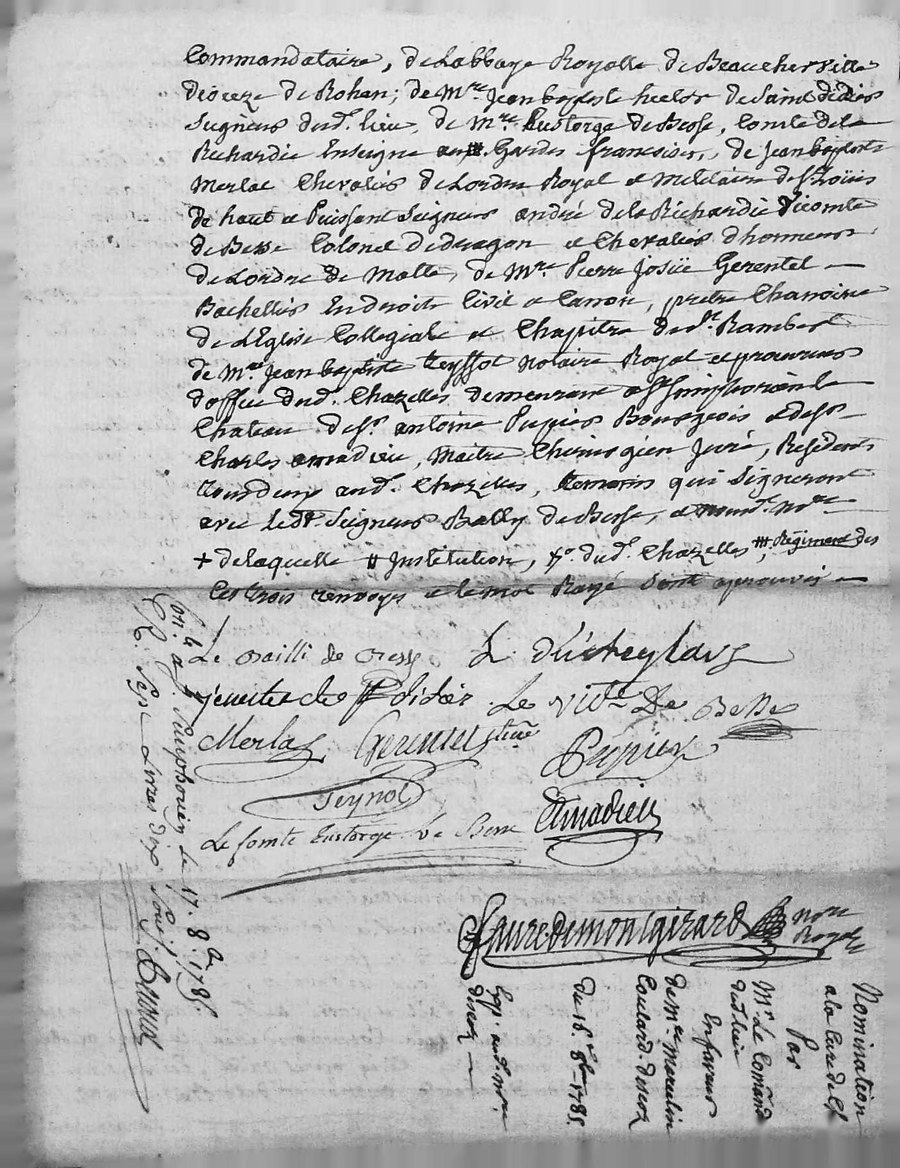 Commandataire, de Labbaye Royalle de Beaucherville
dioceze de Rohan; de Mre Jean baptiste de Saint didier
Seigneur dud. lieu, de Mre Eustorge de Besse, Comte de la
Richardie Enseigne aux Gardes francoises, de Jean baptiste
Merlac Chevalier de Lordre Royal et Militaire de St Loüis
de haut et Puissant Seigneur andré de la Richardie Vicomte
de Besse Colonel de dragon et Chevalier dhonneur
de Lordre de Malte, de Mre Pierre Josüe Gerentet
Bachellier En droit Civil et Canon, pretre Chanoine
de LEglise Collegiale et Chapitre de St Rambert
de Mre Jean baptiste Notaire Royal et procureur
doffice dud. Chazelles demeurant a St simphorien le
Chateau de Sr antoine Pupier Bourgeois et de Sr
Charles amadieu, Maitre Chirurgien Juré, Residents
tous deux aud. Chazelles, temoins qui Signeront
avec Led. Seigneur Bailly de Besse, et nousd. nore
+ de laquelle # Institution, dud. Chazelles, ### Regiment des
Les trois renvoys et le mot Rayé Sont aprouvés
Le Bailli de Besse L. ducheylard
de St didier Le Victe De Besse
Merlac Gerentet Pupier
Le Comte Eustorge De Besse Amadieu
Faure de montgirard nore Royal
Con. le a St Simphorien le 17. 8bre 1785
R. Sept Livres dix Sous
Nomination
a la Cure de
Par
Mr Le Comand
dud. lieu
En faveur
de Mre
du 16. 8bre 1785.
Exp. aud. nore